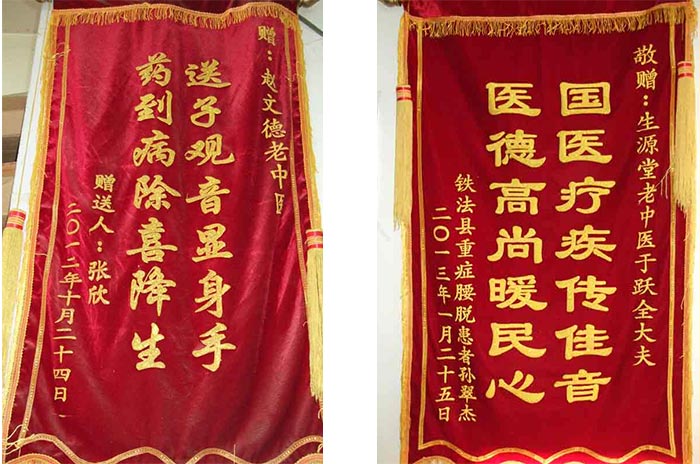 赠：赵文德老中医
送子观音显身手
药到病除喜降生
赠送人：张欣
二〇一二年十月二十四日
敬赠：生源堂老中医于跃全大夫
国医疗疾传佳音
医德高尚暖民心
铁法县重症腰脱患者孙翠杰
二〇一三年一月二十五日